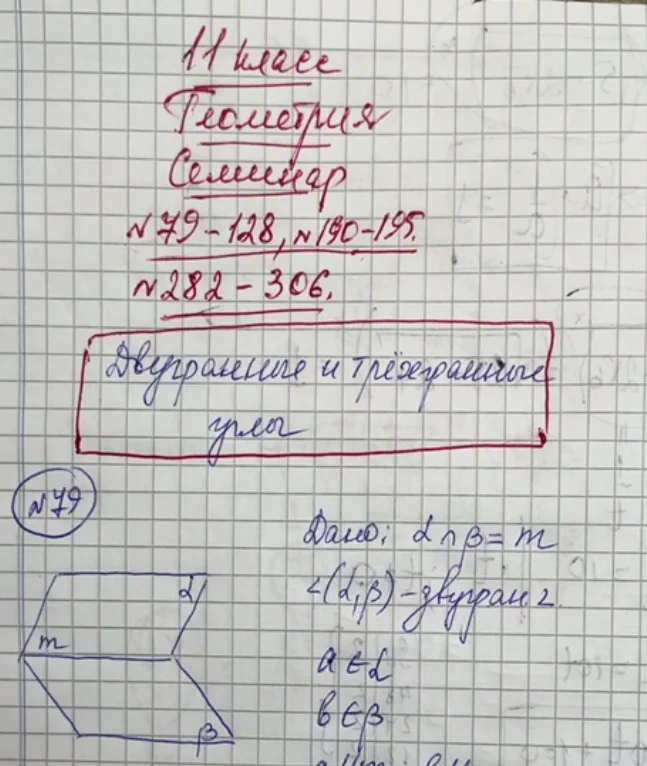 11 класс
Геометрия
Семинар
№79-128, №190-195.
№282-306.
Двугранные и трёхгранные
углы
№79
Дано: α∩β=m
∠(α;β)-двугран∠.
a∈α
b∈β
α
m
β